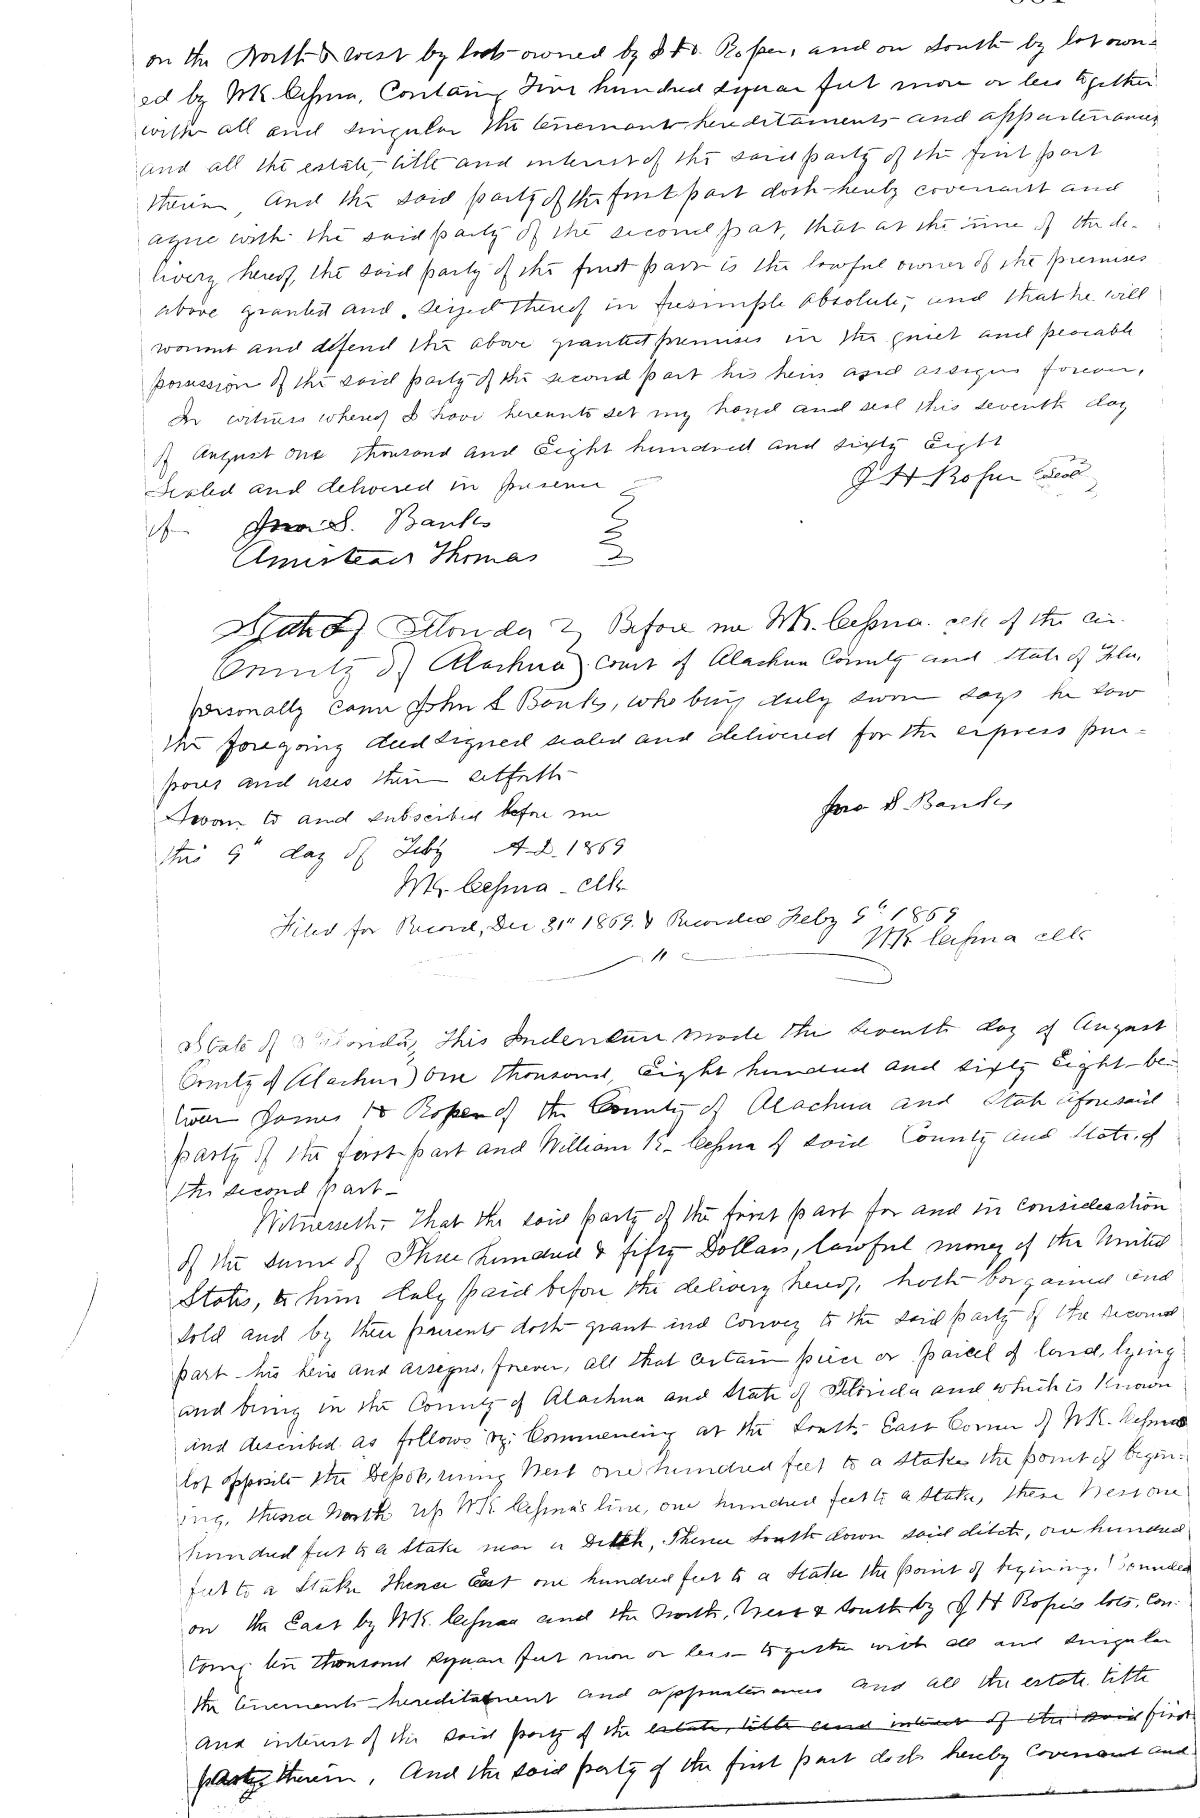 on the North & west by lots owned by J H Roper, and on South by lot own-
ed by WK Cessna, Containg Five hundred square feet more or less together
with all and singular the tenements hereditaments and appurtenances
and all the estate, title and interest of the said party of the first part
therein, And the said party of the first part doth hereby covenant and
agree with the said party of the second part, that at the time of the de-
livery hereof, the said party of the first part is the lawful owner of the premises
above granted and seized thereof in feesimple absolute, and that he will
warrant and defend the above granted premises in the quiet and peacable
possession of the said party of the second part his heirs and assigns forever,
In witness whereof I have hereunto set my hand and seal this seventh day
of August one thousand and Eight hundred and sixty Eight
Sealed and delivered in presence J H Roper Seal
of Jno S. Banks
Armistead Thomas
State of Florida } Before me WK. Cessna clk of the cir.
County of Alachua } court of Alachua County and State of Fla,
personally came John S Banks, who being duly sworn says he saw
the foregoing deed signed sealed and delivered for the express pur-
poses and uses therein setforth
Sworn to and subscribed before me Jno S. Banks
this 9" day of Feby A.D. 1869
WK. Cessna - Clk
Filed for Record, Dec 31" 1869. & Recorded Feby 9" 1869
WK Cessna clk
State of Florida, This Indenture made the seventh day of August
County of Alachua) One thousand, Eight hundred and sixty Eight be-
tween James H Roper of the County of Alachua and State aforesaid
party of the first part and William K. Cessna of said County and State of
the second part -
Witnesseth- That the said party of the first part for and in consideration
of the sum of Three hundred & fifty Dollars, lawful money of the United
States, to him duly paid before the delivery hereof, hath bargained and
sold and by these presents doth grant and Convey to the said party of the second
part his heirs and assigns, forever, all that certain piece or parcel of land, lying
and being in the County of Alachua and State of Florida and which is Known
and described as follows viz: Commencing at the South East Corner of WK. Cessnas
lot opposite the Depot, runing West one hundred feet to a Stake the point of begin-
ing, thence North up WK Cessna's line, one hundred feet to a Stake, thence West one
hundred feet to a Stake near a Ditch, Thence South down said ditch, one hundred
feet to a Stake thence East one hundred feet to a Stake the point of begining. Bounded
on the East by WK. Cessna and the North, West & South by J H Roper's lots, Con-
taing ten thousand square feet more or less together with all and singular
the tenements hereditatment and appurtenances and all the estate title
and interest of the said party of the estate, title and interest of the said first
party therein, And the said party of the first part doth hereby Covenant and